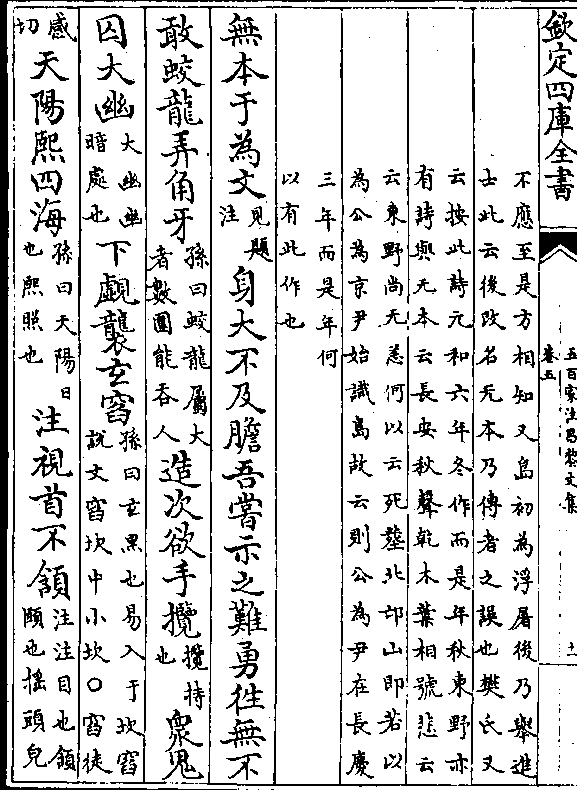 欽定四庫全書
五百家注昌黎文集
卷五
十一
不應至是方相知又島初為浮屠後乃舉進
士此云後改名无本乃傳者之誤也樊氏又
云按此詩元和六年冬作而是年秋東野亦
有詩與无本云長安秋聲乾木葉相號悲云
云東野尚无恙何以云死塟北邙山即若以
為公為京尹始識島故云則公為尹在長慶
三年而是年何
以有此作也
無本于為文見題注身大不及膽吾嘗示之難勇往無不
敢蛟龍弄角牙孫曰蛟龍屬大者數圍能吞人造次欲手攬攬持也衆鬼
囚大幽大幽幽暗處也下覷襲玄窞孫曰玄黒也易入于坎窞説文窞坎中小坎○窞徒
感切天陽熙四海孫曰天陽日也熙照也注視首不頷注注目也頷頤也搖頭皃